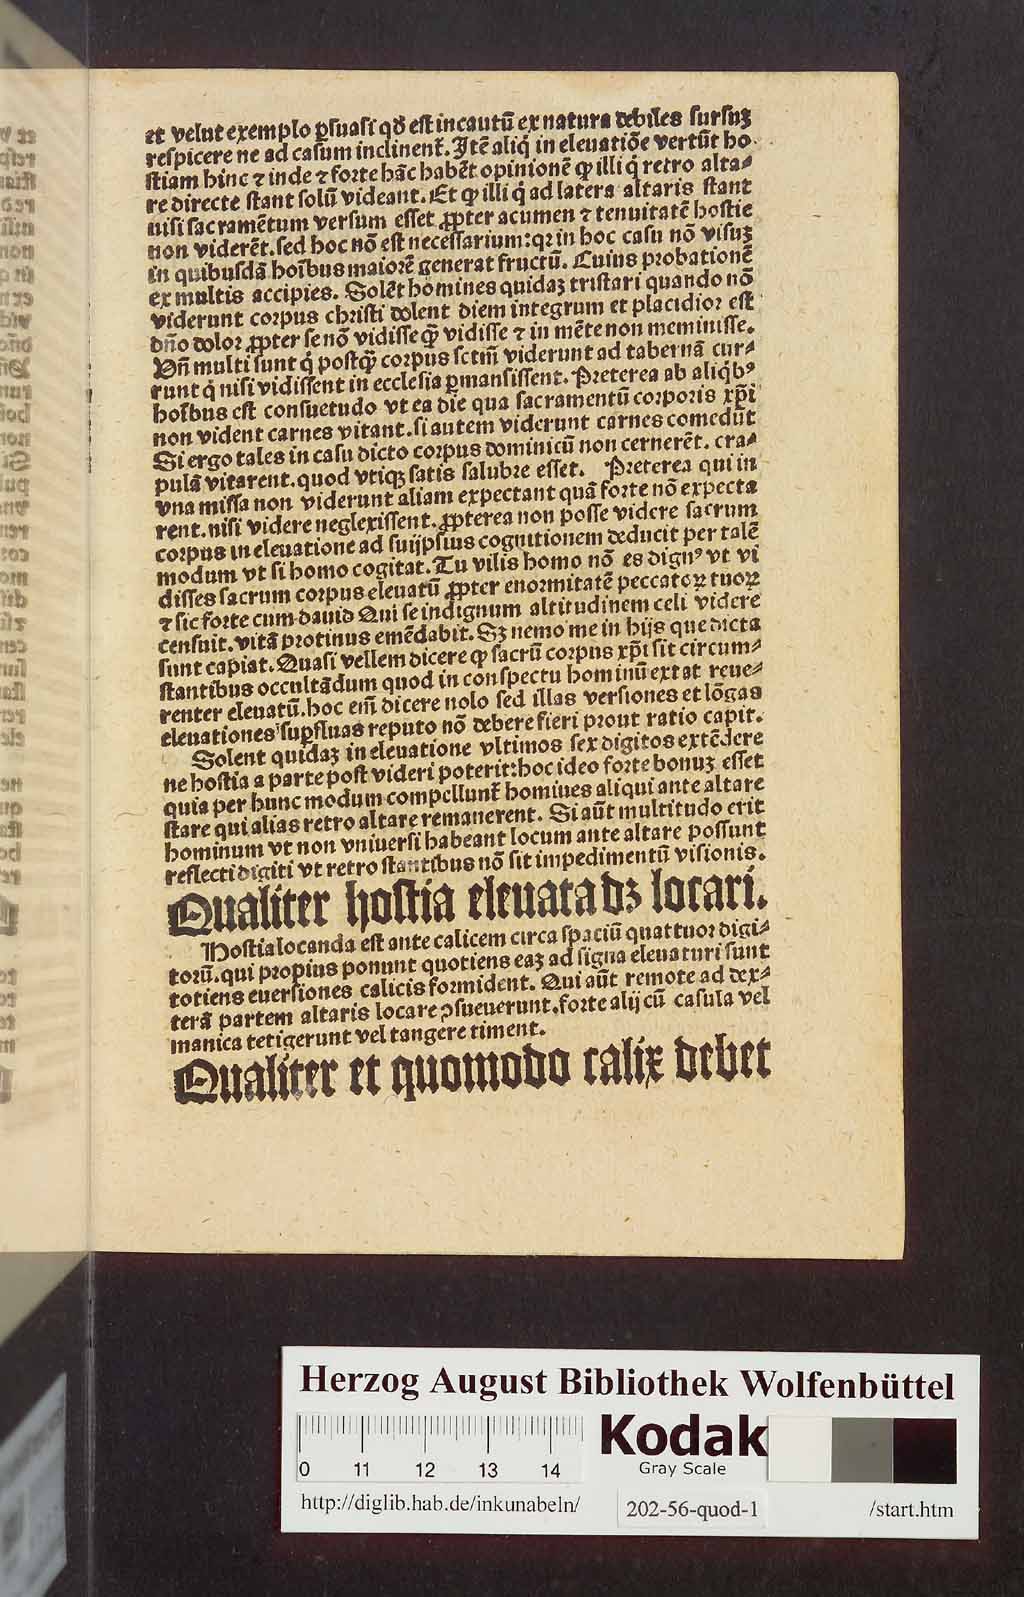 et velut exemplo ꝑsuasi qď est incautū ex natura debiles sursuꝫ
respicere ne ad casum inclinent᷑. Itē aliq̇ in eleuatiōe vertūt ho-
stiam hinc ⁊ inde ⁊ forte hāc habēt opinionē ꝙ illi q̇ retro alta-
re directe stant solū videant. Et ꝙ illi q̇ ad latera altaris stant
nisi sacramētum versum esset ꝓpter acumen ⁊ tenuitatē hostie
non viderēt. sed hoc nō est necessarium: qꝛ in hoc casu nō visuꝫ
in quibusdā hoībus maiorē generat fructū. Cuius probationē
ex multis accipies. Solēt homines quidaꝫ tristari quando nō
viderunt corpus christi dolent diem integrum et placidior est
dn̄o dolor ꝓpter se nō vidisse q̄ꝫ vidisse ⁊ in mēte non meminisse.
Vn̄ multi sunt q̇ postq̄ꝫ corpus sctm̄ viderunt ad tabernā cur-
runt q̇ nisi vidissent in ecclesia ꝑmansissent. Preterea ab aliq̇bꝰ
hoībus est consuetudo vt ea die qua sacramentū corporis xp̄i
non vident carnes vitant. si autem viderunt carnes comedūt
Si ergo tales in casu dicto corpus dominicū non cernerēt. cra-
pulā vitarent. quod vtiqꝫ satis salubre esset. Preterea qui in
vna missa non viderunt aliam expectant quā forte nō expecta
rent. nisi videre neglexissent. ꝓpterea non posse videre sacrum
corpus in eleuatione ad suijpsius cognitionem deducit per talē
modum vt si homo cogitat. Tu vilis homo nō es dignꝰ vt vi
disses sacrum corpus eleuatū ꝓpter enormitatē peccatoꝝ tuoꝝ
⁊ sic forte cum dauid Qui se indignum altitudinem celi videre
censuit. vitā protinus emēdabit. Sꝫ nemo me in hijs que dicta
sunt capiat. Quasi vellem dicere ꝙ sacrū corpus xp̄i sit circum-
stantibus occultādum quod in conspectu hominū extat reue-
renter eleuatū. hoc em̄ dicere nolo sed illas versiones et lōgas
eleuationes suꝑfluas reputo nō debere fieri prout ratio capit.
Solent quidaꝫ in eleuatione vltimos sex digitos extēdere
ne hostia a parte post videri poterit: hoc ideo forte bonuꝫ esset
quia per hunc modum compellunt᷑ homines aliqui ante altare
stare qui alias retro altare remanerent. Si aūt multitudo erit
hominum vt non vniuersi habeant locum ante altare possunt
reflecti digiti vt retro stantibus nō sit impedimentū visionis.
Qualiter hostia eleuata dꝫ locari.
Hostia locanda est ante calicem circa spaciū quattuor digi-
torū. qui propius ponunt quotiens eaꝫ ad signa eleuaturi sunt
totiens euersiones calicis formident. Qui aūt remote ad dex-
terā partem altaris locare ꝯsueuerunt. forte alij cū casula vel
manica tetigerunt vel tangere timent.
Qualiter et quomodo calix debet
Herzog August Bibliothek Wolfenbüttel
Kodak
Gray Scale
0 11 12 13 14
http://diglib.hab.de/inkunabeln/ 202-56-quod-1 /start.htm